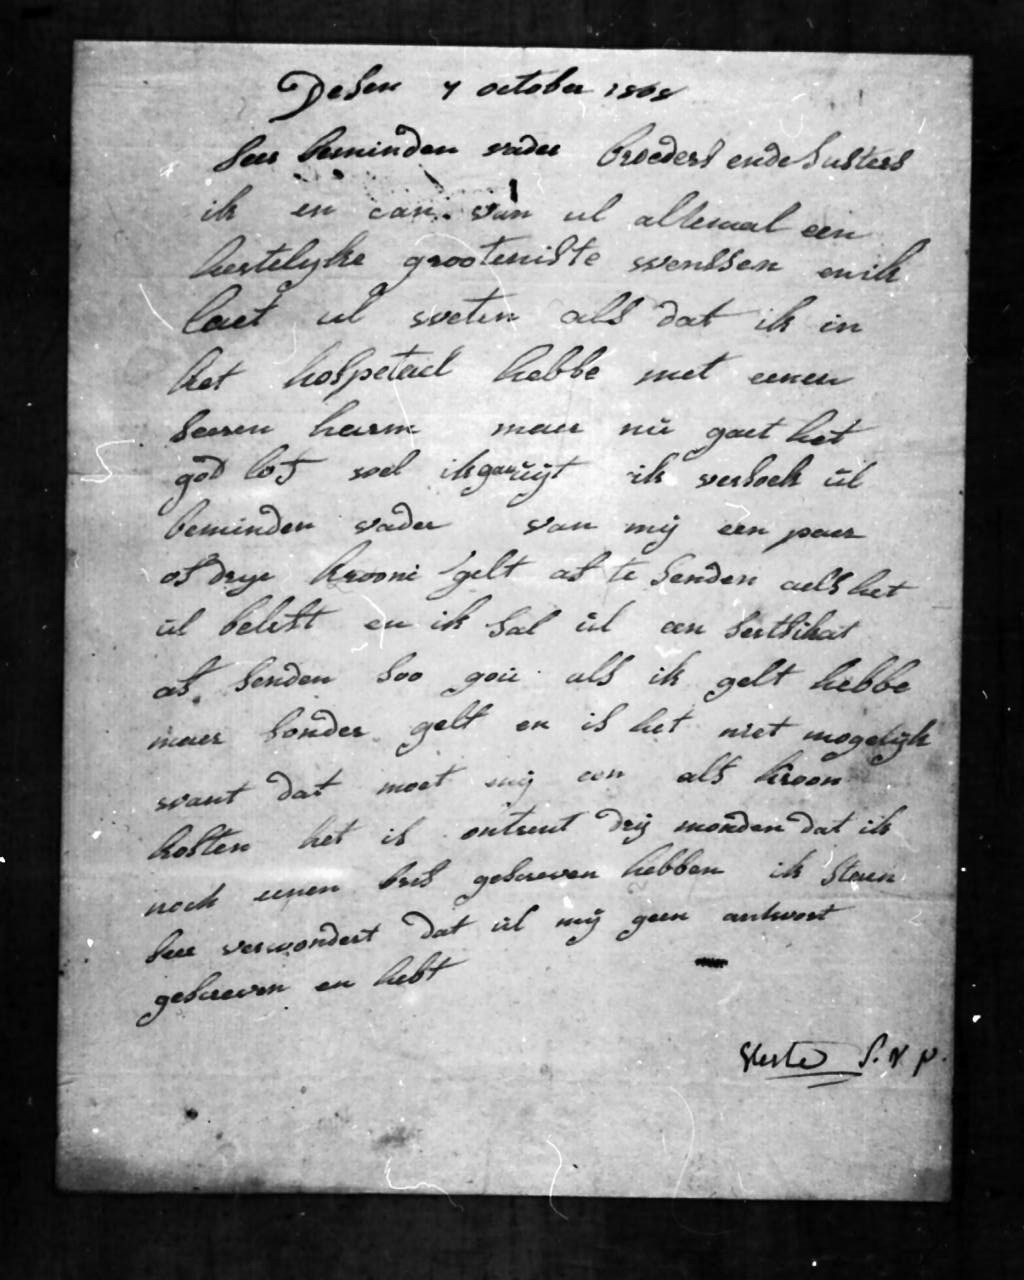 Desen 7 october 1808
seer beminden vader broeders ende susters
ik en can van ul allemael een
hertelyke grooteniste wenssen en ik
laet ul weten als dat ik in
het hospetael hebbe met eenen
seeren harm maer nu gaet het
god lof wel ik ul versoek ul
beminden vader van mij een paer
of drye kroone gelt af te senden aels het
ul belift en ik sal ul een sertfikat
af senden soo gou als ik gelt hebbe
maer sonder gelt en is het niet mogelijk
want dat moet mij een als kroon
kosten het is ontrent drij monden dat ik
noch eenen brif gescreven hebben ik staen
seer verwondert dat ul mij geen antwort
gescreven en hebt
S.V.P.